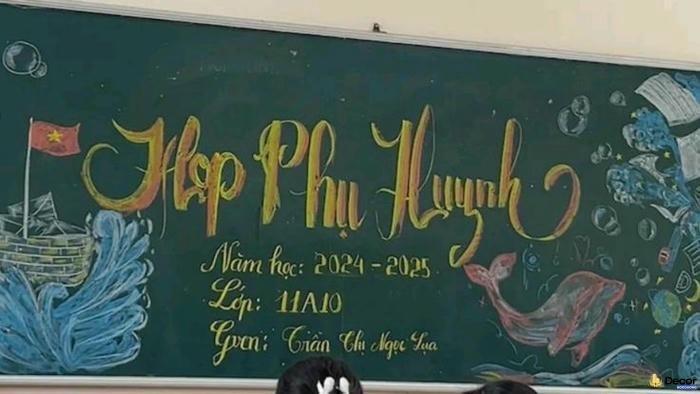 Họp Phụ Huynh
Năm học: 2024 - 2025
Lớp: 11A10
Gvcn: Trần Thị Ngọc Lụa
Decor